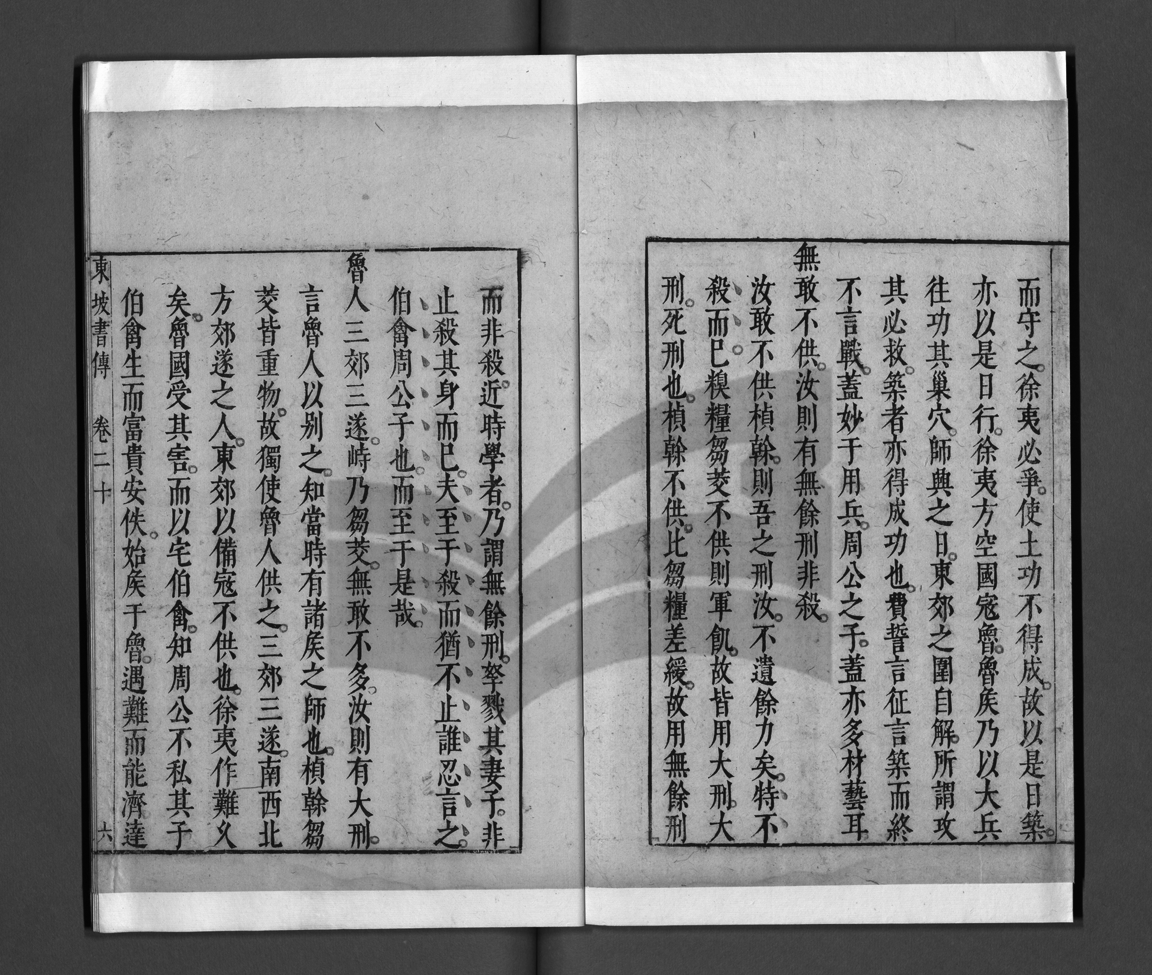 而守之。徐夷必爭。使土功不得成。故以是日築。
亦以是日行。徐夷方空國寇魯。魯矦乃以大兵
往功其巢穴。師興之日。東郊之圍自解。所謂攻
其必救。築者亦得成功也。費誓言征言築而終
不言戰。蓋妙于用兵。周公之子。蓋亦多材藝耳
無敢不供。汝則有無餘刑非殺。
汝敢不供楨榦。則吾之刑汝。不遺餘力矣。特不
殺而巳。糗糧芻茭不供則軍飢。故皆用大刑。大
刑。死刑也。楨榦不供。比芻糧差緩。故用無餘刑
而非殺。近時學者。乃謂無餘刑。孥戮其妻子。非
止殺其身而巳。夫至于殺而猶不止誰忍言之。
伯禽周公子也。而至于是哉。
魯人三郊三遂。峙乃芻茭。無敢不多。汝則有大刑。
言魯人以别之。知當時有諸矦之師也。楨榦芻
茭皆重物。故獨使魯人供之。三郊三遂。南西北
方郊遂之人。東郊以備寇不供也。徐夷作難乆
矣。魯國受其害。而以宅伯禽。知周公不私其子
伯禽生而富貴安佚。始矦于魯。遇難而能濟。達
東坡書傳 卷二十 六